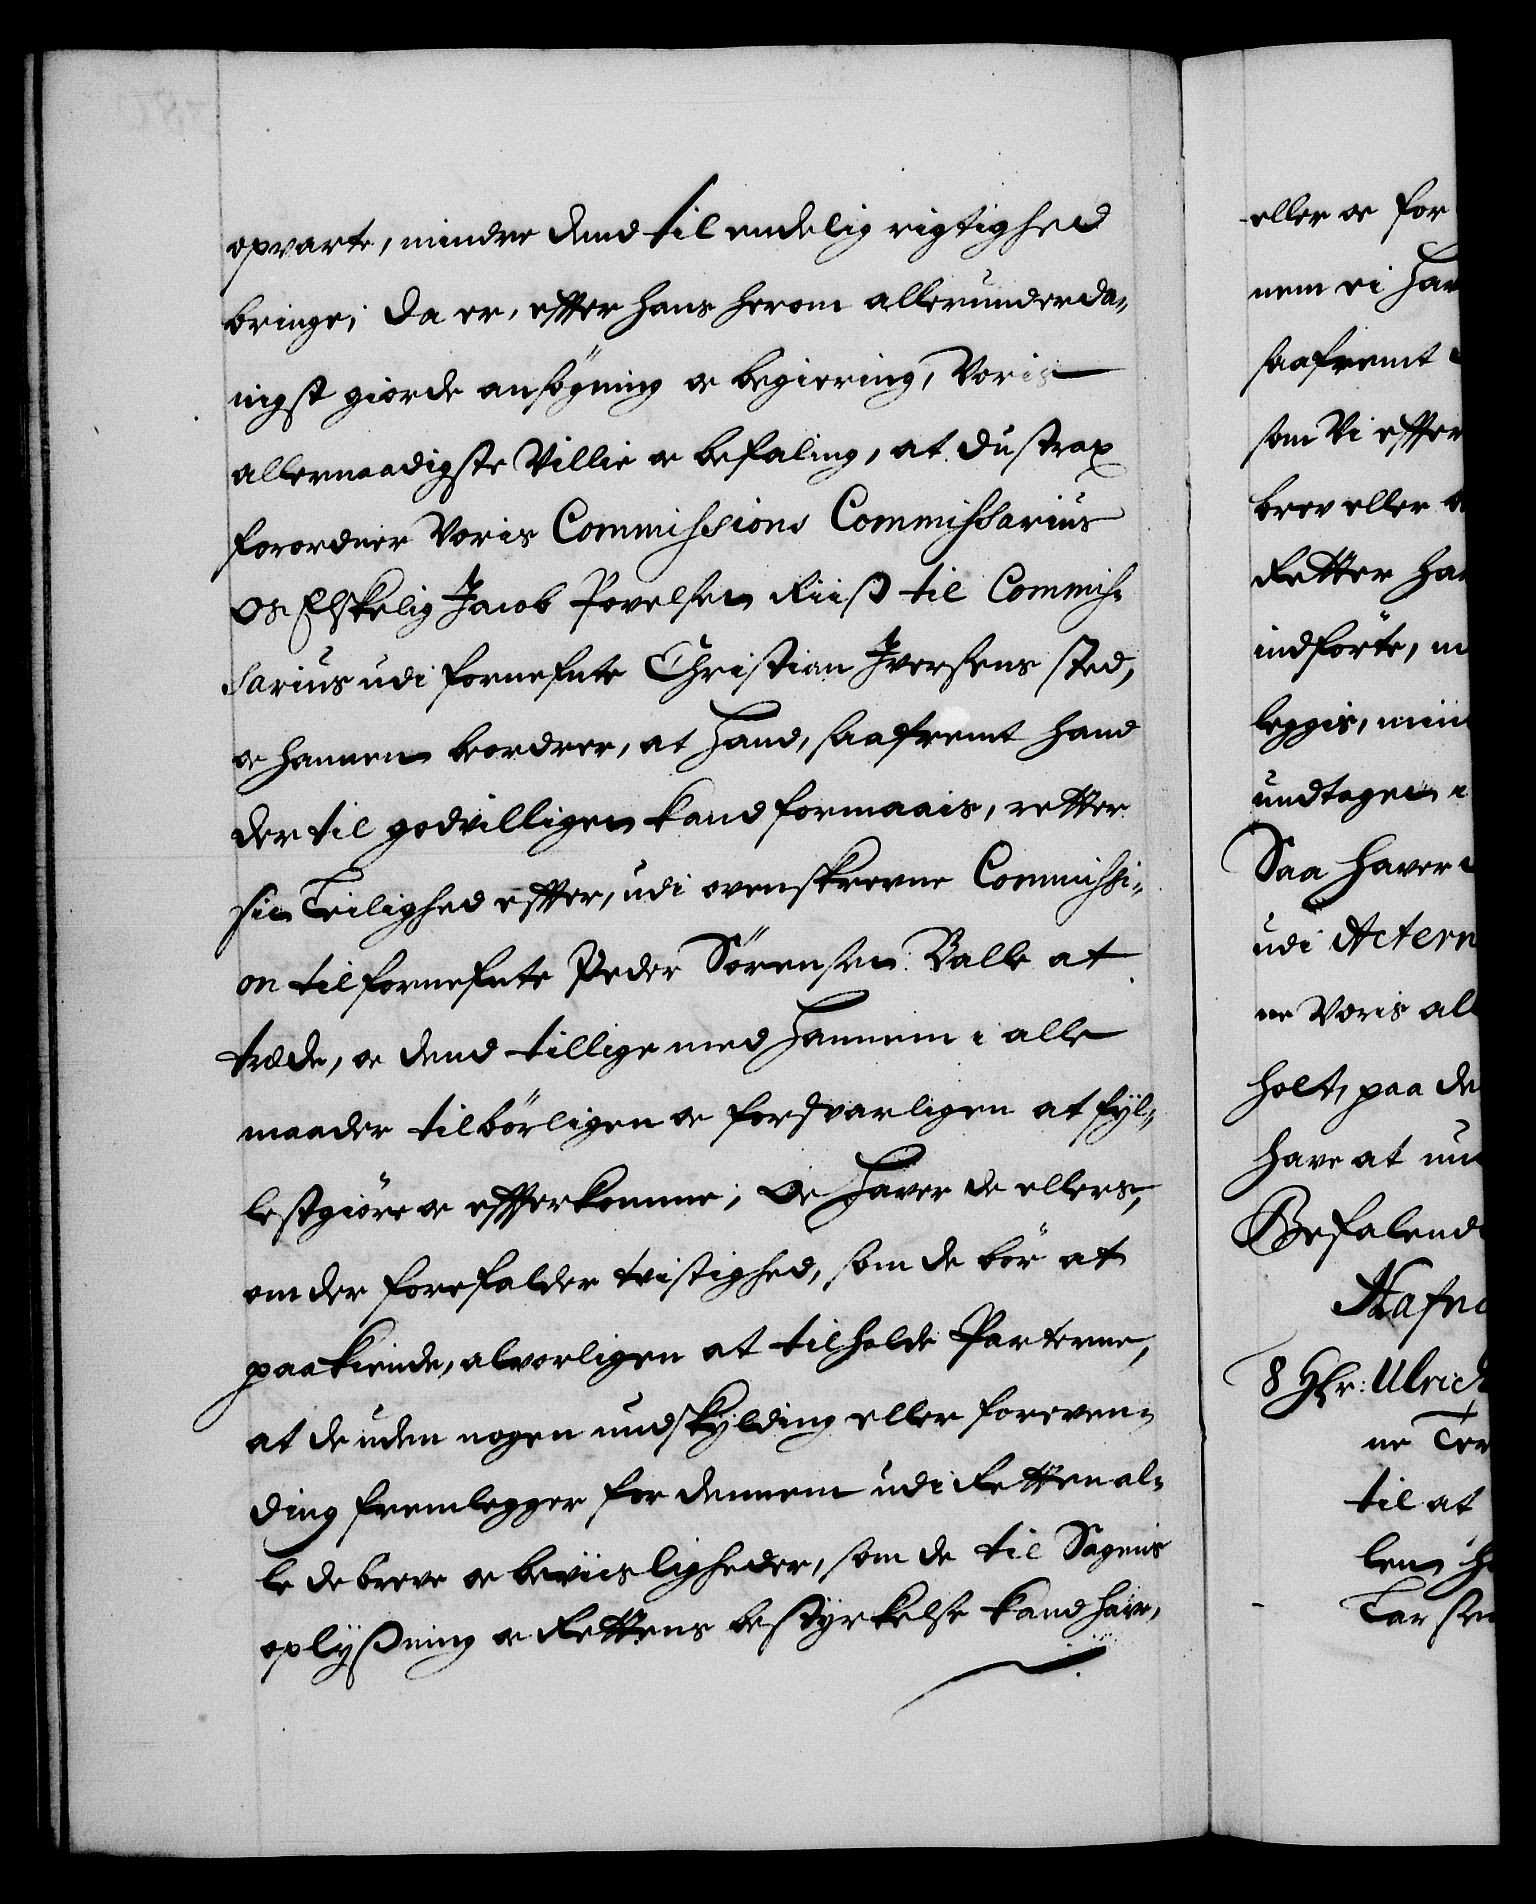 opvarte, mindre dend til endelig rigtighed
bringe; Da er, efter hans herom allerunderda-
nigst giorde ansögning oc begiering, Voris
allernaadigste Villie oc befaling, at du strax
forordner Voris Commissions Commissarius
Os Elskelig Jacob Povelsen Riisß til Commis-
sarius udi fornefnte Christian Iversens sted,
oc hannem beordrer, at hand, saafremt hand
der til godvilligen kand formaais, retter
sin Leilighed efter, udi ovenskrevne Commissi-
on til fornefnte Peder Sörensen Balle at
træde, oc dend tillige med hannem i alle
maader tilbörligen oc forsvarligen at fyl-
lestgiöre oc efterkomme; Oc haver de ellers,
om der forefalder tvistighed, som de bör at
paakiende, alvorligen at tilholde Parterne,
at de uden nogen undskylding eller foreven-
ding fremlegger for dennem udi Retten al-
le de breve oc beviisligheder, som de til Sagens
oplysßning oc Rettens bestyrkelse kand have,
eller oc for
nem ei han
saafremt
som Vi efter
brev eller
Retter ha
indförte, m
leggis, min
undtagen
Saa haver
udi Actern
ne Voris al
holt, paa de
have at
Befalend
Hafn
8 Ulrich
ne
til at
len h
Larsen